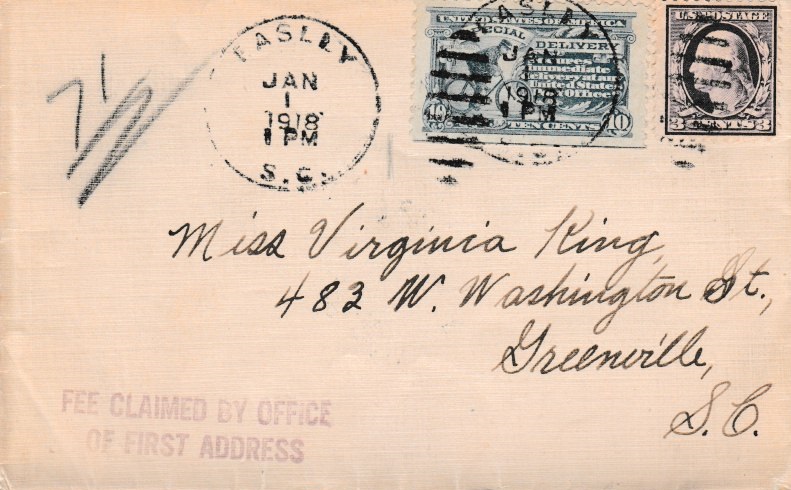 71
EASLEY
JAN
1
1918
1 PM
S.C.
UNITED STATES OF AMERICA
SPECIAL DELIVERY
immediate
delivery at any
United States
Office
10 TEN CENTS 10
EASLEY
JAN
1918
1 PM
U.S. POSTAGE
3 CENTS 3
Miss Virginia King,
483 W. Washington St.,
Greenville,
S.C.
FEE CLAIMED BY OFFICE
OF FIRST ADDRESS